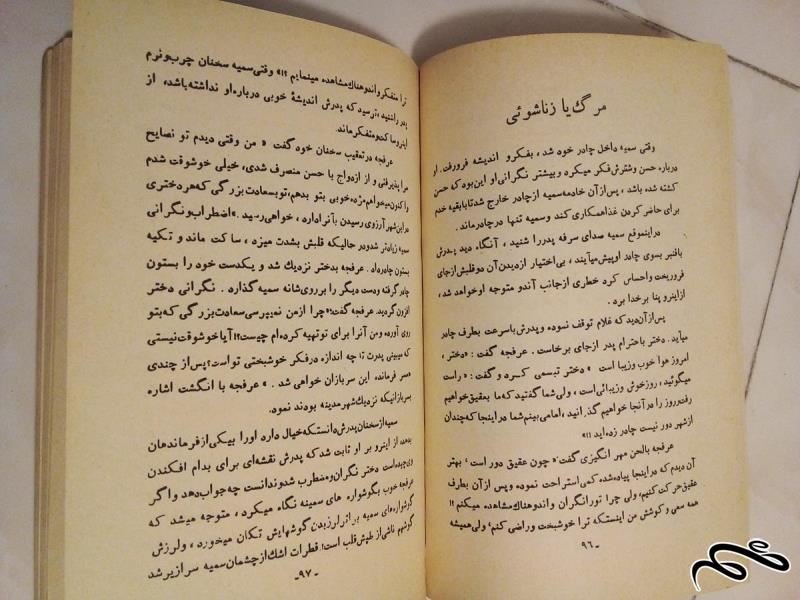 مرگ یا زناشوئی
وقتی سمیه داخل چادر خود شد ، بفکر و اندیشه فرورفت. او
درباره حسن و شترش فکر میکرد و بیشتر نگرانی او این بود که حسن
کشته شده باشد ، پس از آن خادمه سمیه از چادر خارج شد تا با بقیه خدم
برای حاضر کردن غذا همکاری کند و سمیه تنها در چادر ماند .
در اینموقع سمیه صدای سرفه پدر را شنید ، آنگاه دید پدرش
با قنبر بسوی چادر او پیش میآیند ، بی اختیار از دیدن آن دو قلبش از جای
فروریخت و احساس کرد خطری از جانب آندو متوجه او خواهد شد ،
از اینرو پنا بر خدا برد .
پس از آن دید که غلام توقف نموده و پدرش با سرعت بطرف چادر
میآید . دختر با احترام پدر از جای برخاست . عرفجه گفت : «دختر ،
امروز هوا خوب وزیبا است » دختر تبسمی کرد و گفت : « راست
میگوئید ، روز خوش وزیبائی است ، ولی شما گفتید که ما بعقیق خواهیم
رفت و روز را در آنجا خواهیم گذرانید ، اما می بینم شما در اینجا که چندان
از شهر دور نیست چادر زده اید !!»
عرفجه بالحن مهر انگیزی گفت: « چون عقیق دور است ، بهتر
آن دیدم که در اینجا پیاده شده کمی استراحت نموده و پس از آن بطرف
عقیق حرکت کنیم ، ولی چرا تو را نگران و اندوهناك مشاهده میکنم !!
همه سعی و کوشش من اینستکه ترا خوشبخت و راضی کنم ، ولی همیشه
-۹۶-
ترا متفکر و اندوهناك مشاهده مینمایم ؟!» وقتی سمیه سخنان چرب و نرم
پدر را شنید ، ترسید که پدرش اندیشهٔ خوبی درباره او نداشته باشد ، از
اینرو ساکت و متفکر ماند.
عرفجه در تعقیب سخنان خود گفت « من وقتی دیدم تو نصایح
مرا پذیرفتی و از ازدواج با حسن منصرف شدی ، خیلی خوشوقت شدم
را کنون میخواهم مژده خوبی بتو بدهم ، تو بسعادت بزرگی که هر دختری
در این شهر آرزوی رسیدن بآنرا دارد ، خواهی رسید .» اضطراب و نگرانی
سمیه زیادتر شد و در حالیکه قلبش بشدت میزد ، ساکت ماند و تکیه
بستون چادر داد . عرفجه بدختر نزدیك شد و یکدست خود را بستون
چادر گرفته و دست دیگر را بر روی شانه سمیه گذارد . نگرانی دختر
افزون گردید. عرفجه گفت: «چرا از من نمیپرسی سعادت بزرگی که بتو
روی آورده و من آنرا برای تو تهیه کرده ام چیست؟! آیا خوشوقت نیستی
که میبینی پدرت تا چه اندازه در فکر خوشبختی تو است؟ پس از چندی
همسر فرمانده این سربازان خواهی شد . » عرفجه با انگشت اشاره
بسربازانیکه نزدیك شهر مدینه بودند نمود.
سمیه از سخنان پدرش دانستکه خیال دارد اورا بیکی از فرماندهان
بدهد از اینرو بر او ثابت شد که پدرش نقشه ای برای بدام افکندن
وی چیده است دختر نگران و مضطرب شد و ندانست چه جواب دهد و اگر
عرفجه خوب بگوشواره های سمینه نگاه میکرد ، متوجه میشد که
گوشواره های سمیه بر اثر لرزیدن گوشهایش تکان میخورد ، ولرزش
گوشهم ناشی از طپش قلب است! قطرات اشك از چشمان سمیه سرازیر شد
-۹۷-